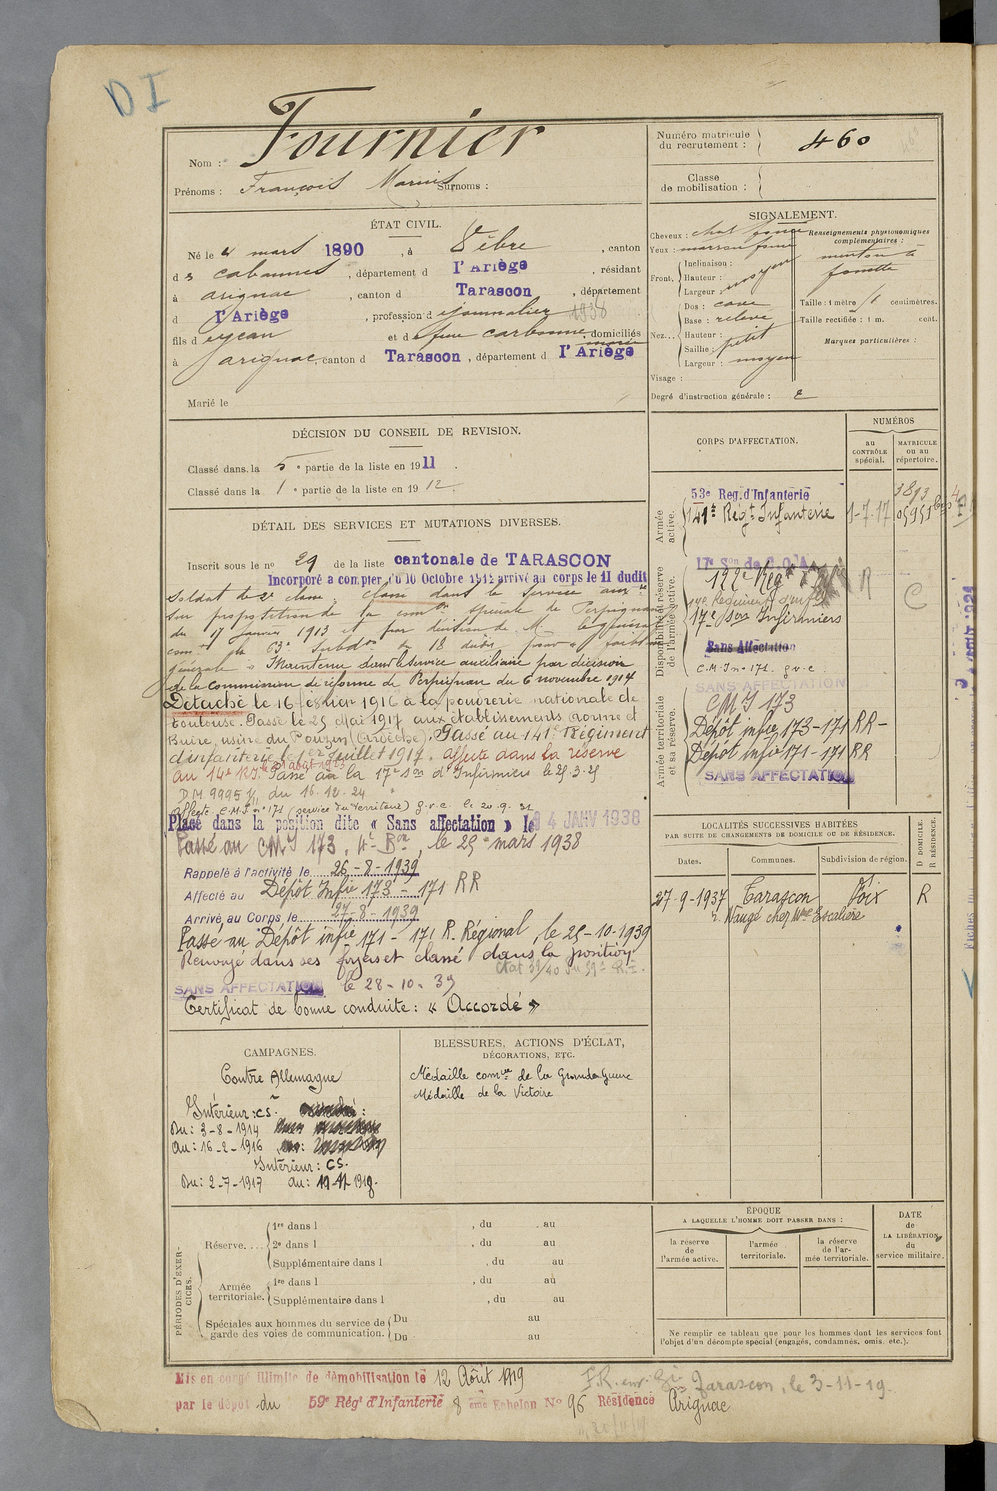 DI
Nom : Fournier
Prénoms : François Surnoms :
Numéro matricule du recrutement : 460
Classe de mobilisation :
ÉTAT CIVIL.
Né le 4 mars 1890, à Vèbre, canton
d es cabannes, département d l'Ariège, résidant
à arignac, canton d Tarascon, département
d l'Ariège, profession d journalier 1938
fils d et d domiciliés
à arignac, canton d Tarascon, département d l'Ariège
Marié le
SIGNALEMENT.
Cheveux : chat foncé
Yeux : marron foncé
Front. Inclinaison :
Hauteur : moyen
Largeur :
Nez... Dos : cave
Base : relevé
Hauteur :
Saillie : petit
Largeur : moyen
Visage :
Degré d'instruction générale : 2
Renseignements physionomiques complémentaires :
menton à
fossette
Taille : 1 mètre centimètres.
Taille rectifiée : 1 m. cent.
Marques particulières :
DÉCISION DU CONSEIL DE REVISION.
Classé dans la 5e partie de la liste en 1911.
Classé dans la 1e partie de la liste en 1912.
DÉTAIL DES SERVICES ET MUTATIONS DIVERSES.
Inscrit sous le no 29 de la liste cantonale de TARASCON
Incorporé a compter du 10 Octobre 1912 arrivé au corps le 11 dudit
Soldat de 2e classe. Classé dans le Service aux
Sur proposition de la com spéciale de Perpignan
du 17 Janvier 1913 et par décision de M. le général
com la 63e Subdon du 18 dudit pour faiblesse
générale. Maintenu dans le service auxiliaire par décision
de la commission de réforme de Perpignan du 6 novembre 1914
Détaché le 16 février 1916 à la poudrerie nationale de
Toulouse. Passé le 25 Mai 1917 aux établissements et
Buire, usine du Pouzin (Ardèche). Passé au 141e Régiment
d'infanterie le 1er Juillet 1917. Affecté dans la réserve
au 14e R.I. Passé à la 17e Son d'Infirmiers le 25.3.25
D.M. 9995 du 16-12-24
Affecté C.M.I. no 171 (service du territoire) g.v.c. le 20.9.31
Placé dans la position dite « Sans affectation » le 24 JANV 1938
Passé au CMI 173, 4e Bon, le 25 mars 1938
Rappelé à l'activité le 26-8-1939
Affecté au Dépôt Infie 173-171 RR
Arrivé au Corps le 27-8-1939
Passé au Dépôt infie 171-171 R. Régional, le 25-10-1939
Renvoyé dans ses foyers et classé dans la position
SANS AFFECTATION le 28-10-39
Certificat de bonne conduite : « Accordé »
CORPS D'AFFECTATION.
NUMÉROS
au CONTRÔLE spécial.
MATRICULE ou au répertoire.
Armée active.
53e Reg. d'Infanterie
141e Régt Infanterie 1-7-17
3893
Disponibilité et réserve de l'armée active.
17e Son de C.O.A.
122e Régt R C
17e Son Infirmiers
Sans Affectation
C.M.I no 171. g.v.c.
SANS AFFECTATION
Armée territoriale et sa réserve.
CMI 173
Dépôt infie 173-171 RR -
Dépôt infie 171-171 RR
SANS AFFECTATION
LOCALITÉS SUCCESSIVES HABITÉES
PAR SUITE DE CHANGEMENTS DE DOMICILE OU DE RÉSIDENCE.
Dates. Communes. Subdivision de région. D DOMICILE. R RÉSIDENCE.
27-9-1937 Tarascon Foix R
chez Mme Escalière
CAMPAGNES.
Contre Allemagne
Intérieur : CS.
Du : 3-8-1914
au : 16-2-1916
Intérieur : CS.
Du : 2-7-1917 au : 19-11-1918.
BLESSURES, ACTIONS D'ÉCLAT,
DÉCORATIONS, ETC.
Médaille comve de la Grande Guerre
Médaille de la Victoire
PÉRIODES D'EXERCICES.
Réserve.... 1re dans l , du au
2e dans l , du au
Supplémentaire dans l , du au
Armée territoriale. 1re dans l , du au
Supplémentaire dans l , du au
Spéciales aux hommes du service de garde des voies de communication. Du au
Du au
ÉPOQUE
A LAQUELLE L'HOMME DOIT PASSER DANS :
la réserve de l'armée active.
l'armée territoriale.
la réserve de l'armée territoriale.
DATE de LA LIBÉRATION du service militaire.
Ne remplir ce tableau que pour les hommes dont les services font
l'objet d'un décompte spécial (engagés, condamnés, omis, etc.).
Mis en congé illimité de démobilisation le 12 Août 1919
Tarascon, le 3-11-19.
par le dépôt du 59e Régt d'Infanterie 8 eme Echelon No 96 Résidence Arignac